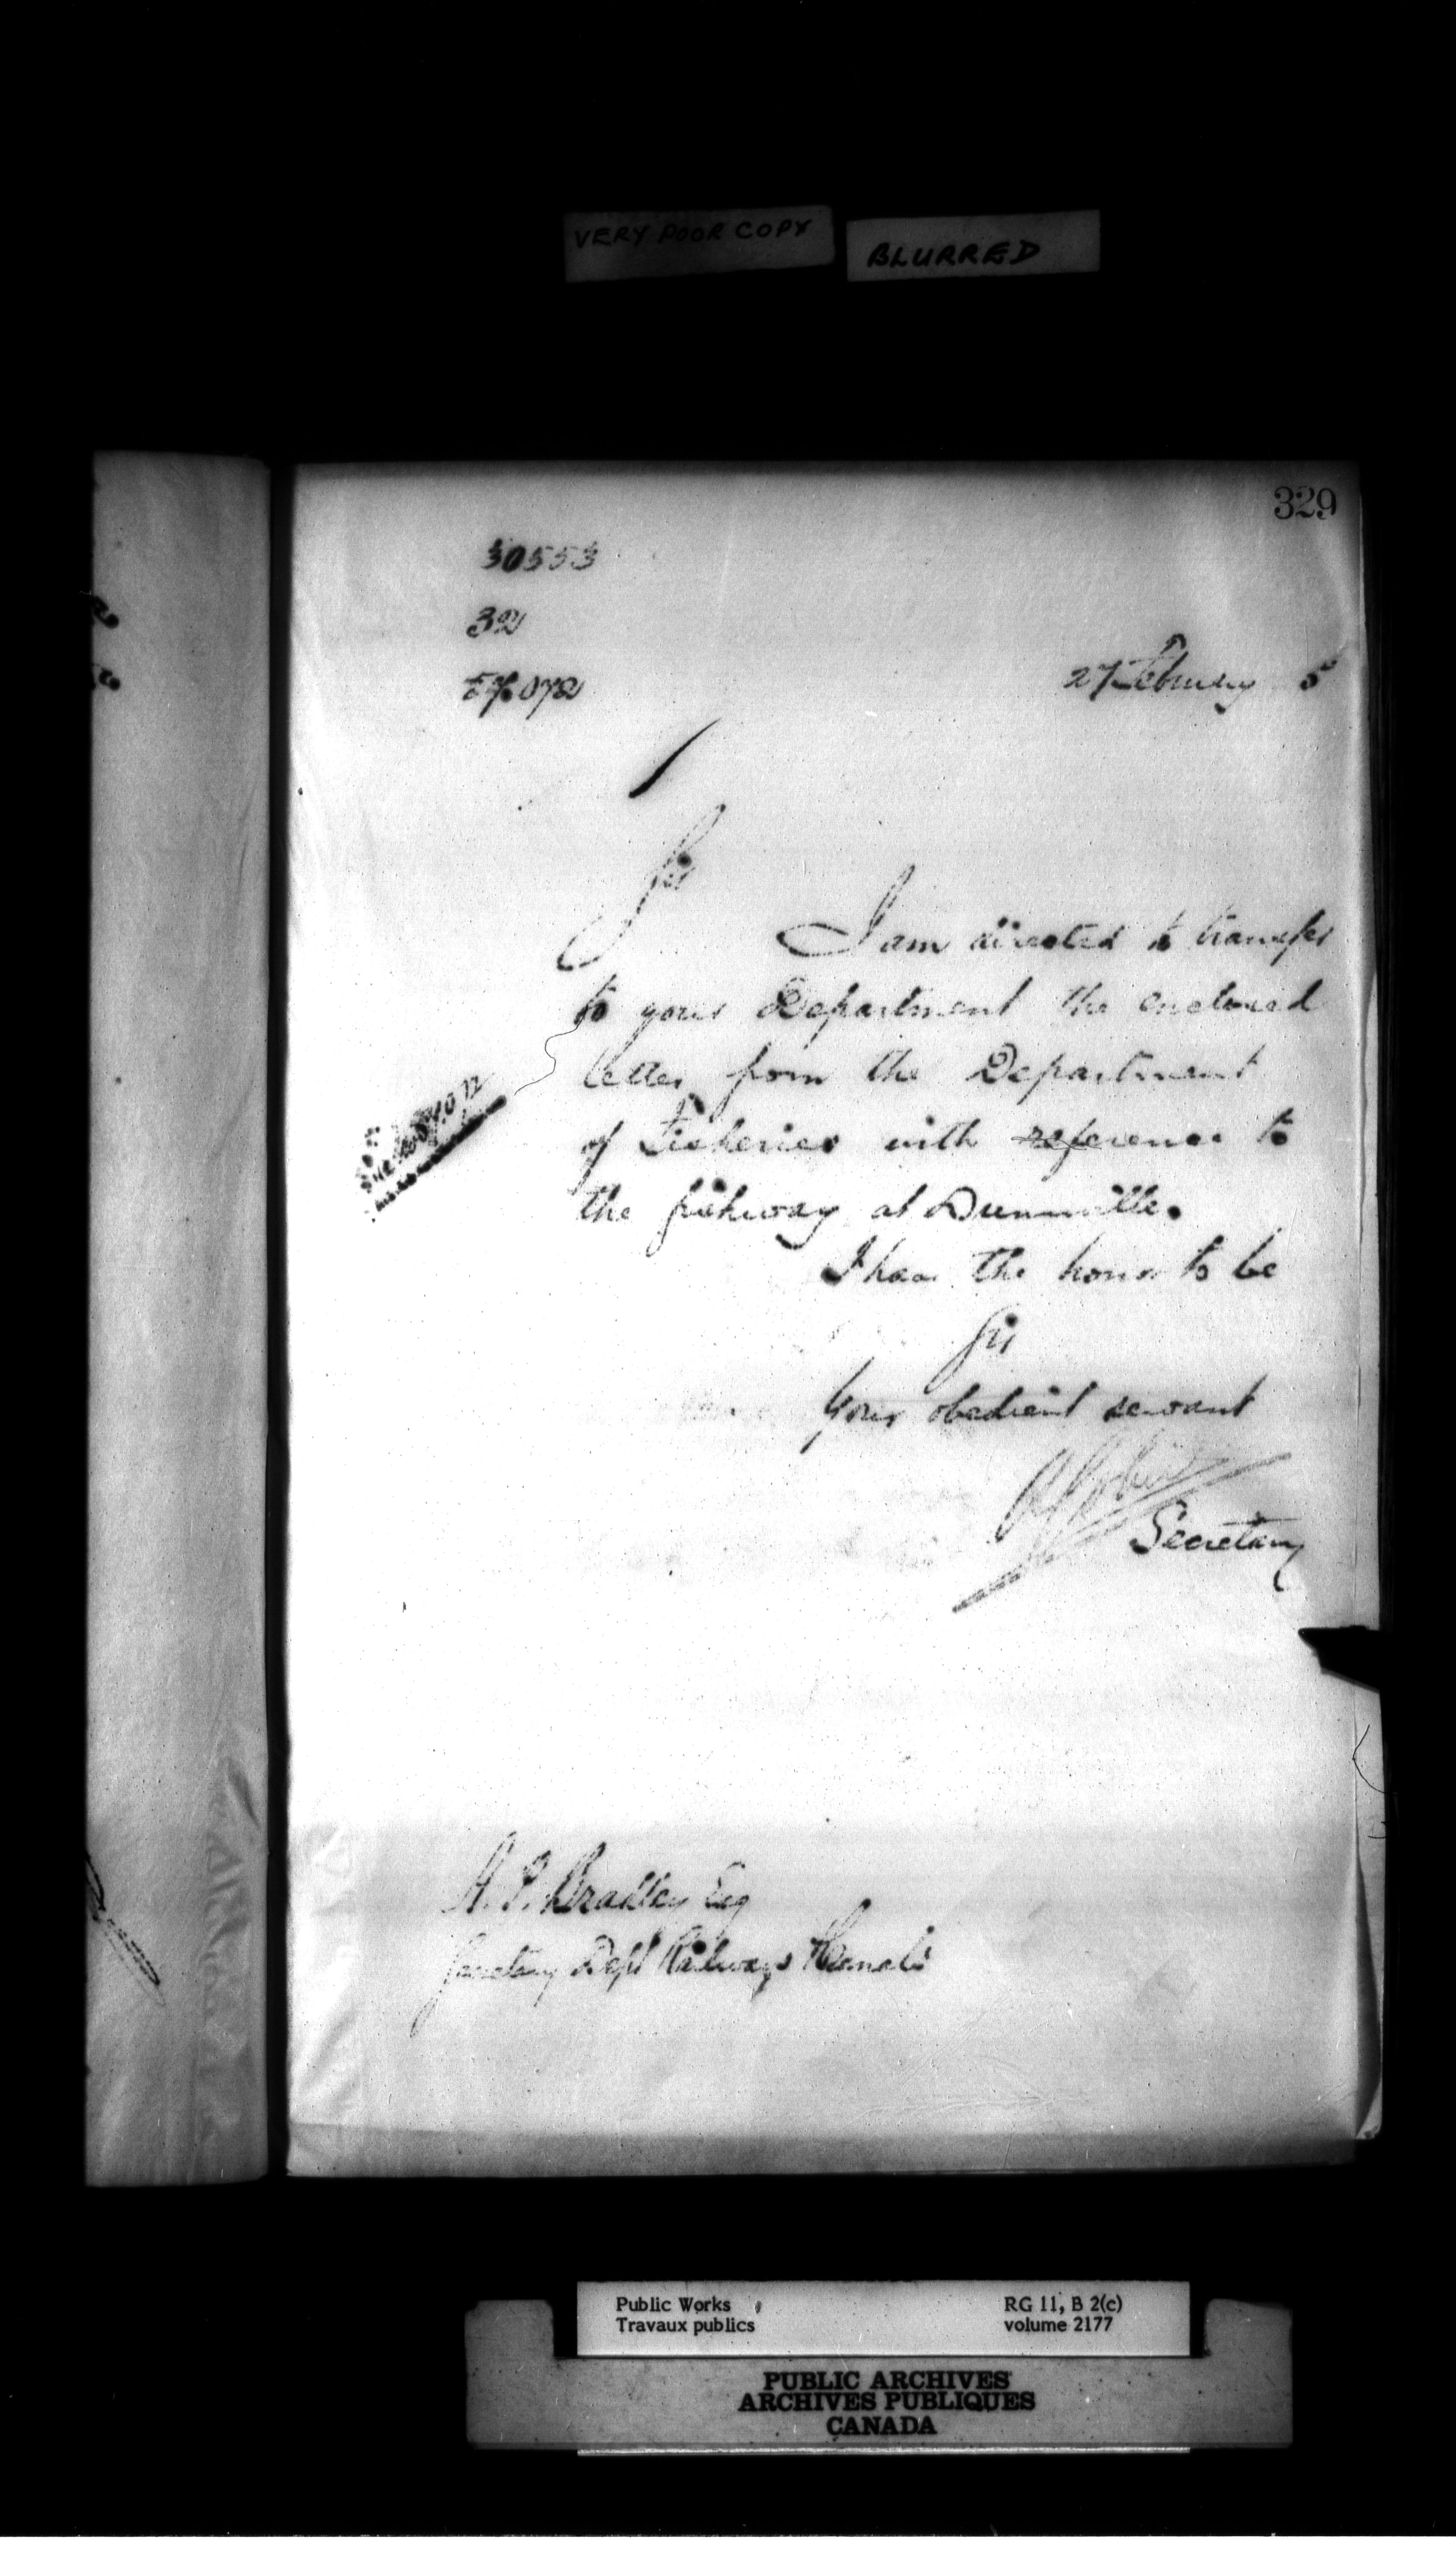 VERY POOR COPY
BLURRED
329
30553
32
27 February 5
Sir
I am directed to transfer
to your Department the enclosed
letter from the Department
of Fisheries with reference to
the fishway at Dunnville.
I have the honor to be
Sir
Your obedient servant
Secretary
A. P. Bradley Esq
Secretary Dept Railways & Canals
Public Works
Travaux publics
RG 11, B 2(c)
volume 2177
PUBLIC ARCHIVES
ARCHIVES PUBLIQUES
CANADA